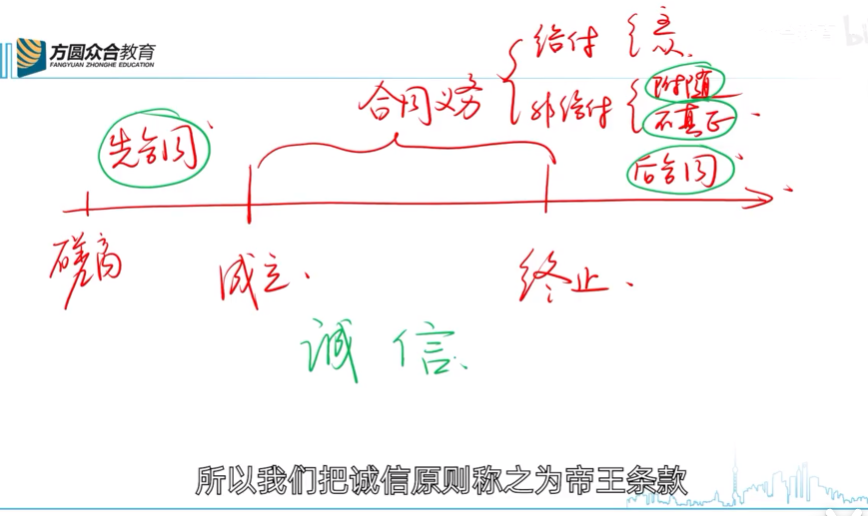 方圆众合教育
FANGYUAN ZHONGHE EDUCATION
给付 主
从
合同义务
非给付 附随
不真正
先合同
后合同
磋商
成立
终止
诚信
所以我们把诚信原则称之为帝王条款